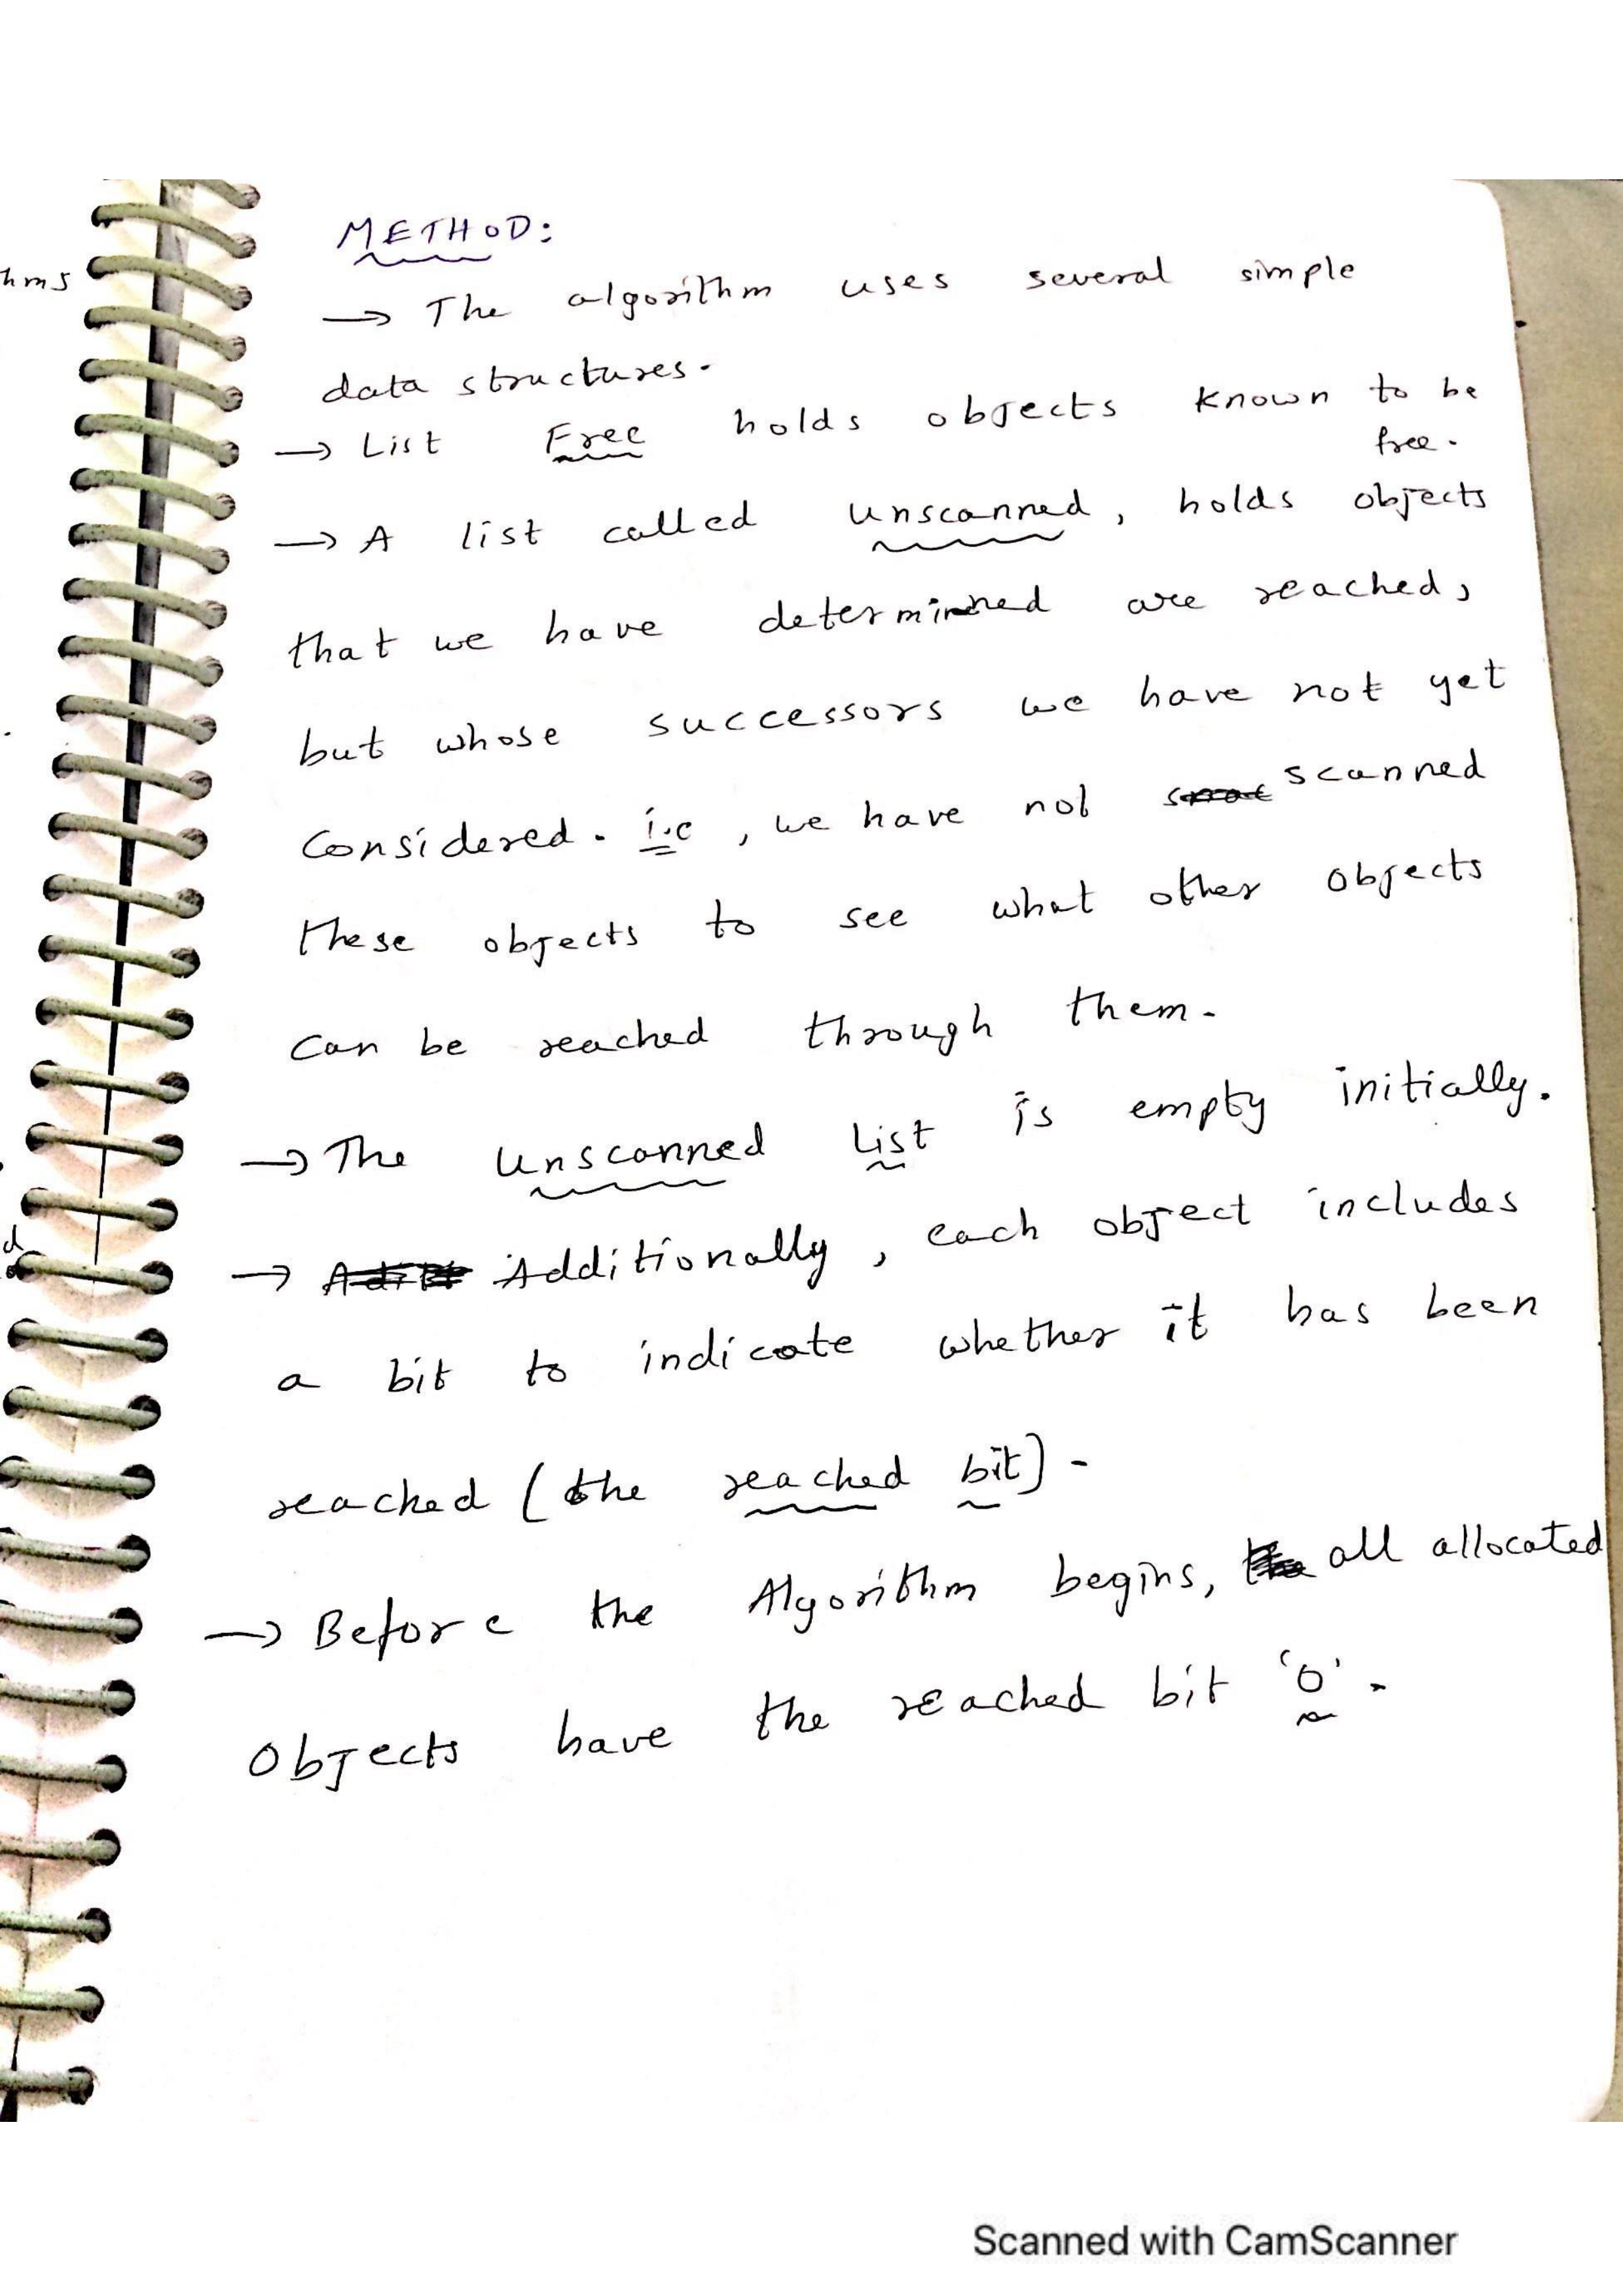 METHOD:
→ The algorithm uses several simple
data structures.
→ List Free holds objects known to be
free.
→ A list called Unscanned, holds objects
that we have determined are reached,
but whose successors we have not yet
Considered. i.e, we have not scanned
these objects to see what other objects
can be reached through them.
→ The Unscanned List is empty initially.
→ Additionally, each object includes
a bit to indicate whether it has been
reached (the reached bit).
→ Before the Algorithm begins, all allocated
Objects have the reached bit '0'.
hms
d
Scanned with CamScanner